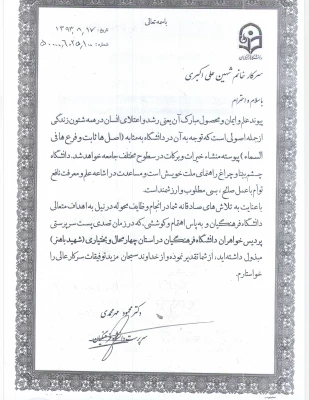 باسمه تعالی
۱۳۹۳/۸/۱۷
سرکار خانم ثمین علی اکبری
با سلام و احترام
پیوند علم و ایمان و محصول مبارک آن یعنی رشد و اعتلای انسان در همه شئون زندگی
از جمله اصولی است که توجه به آن در دانشگاه به مثابه (اصلها ثابت و فرعها فی
السماء) پیوسته منشاء خیرات و برکات در سطوح مختلف جامعه خواهد شد. دانشگاه
چشم بینا و چراغ راهنمای ملت خویش است و مساعدت در اشاعه علم و معرفت نافع
توأم با عمل صالح، بسی مطلوب و ارزشمند است.
با عنایت به تلاش های صادقانه شما در انجام وظایف محوله در نیل به اهداف متعالی
دانشگاه فرهنگیان و به پاس اهتمام و کوششی که در زمان تصدی پست سرپرستی
پردیس خواهران دانشگاه فرهنگیان در استان چهارمحال و بختیاری (شهید باهنر)
مبذول داشته اید، از شما تقدیر نموده و از خداوند سبحان مزید توفیقات سرکار عالی را
خواستارم.
دکتر محمود مهرمحمدی
سرپرست دانشگاه فرهنگیان